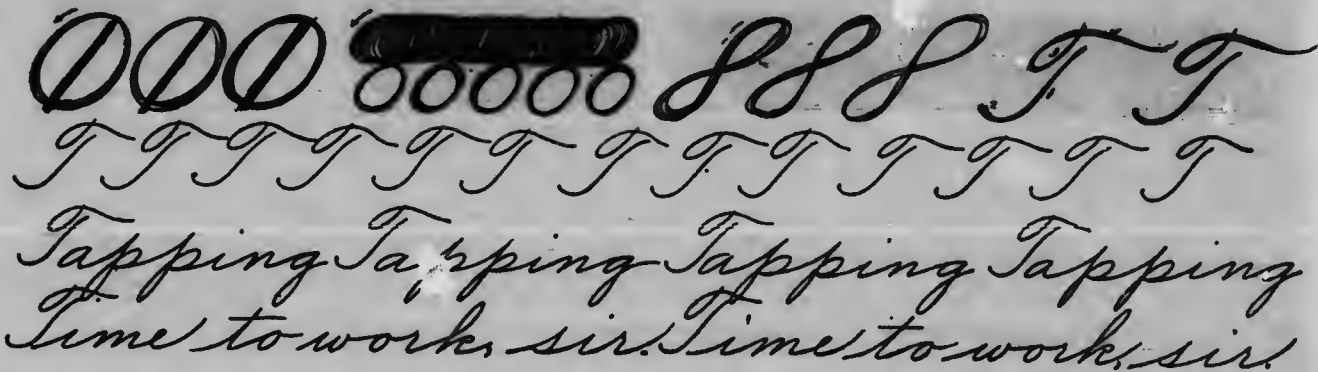 000 00000 888 T T
T T T T T T T T T T T T T
Tapping Tapping Tapping Tapping
Time to work, sir. Time to work, sir.